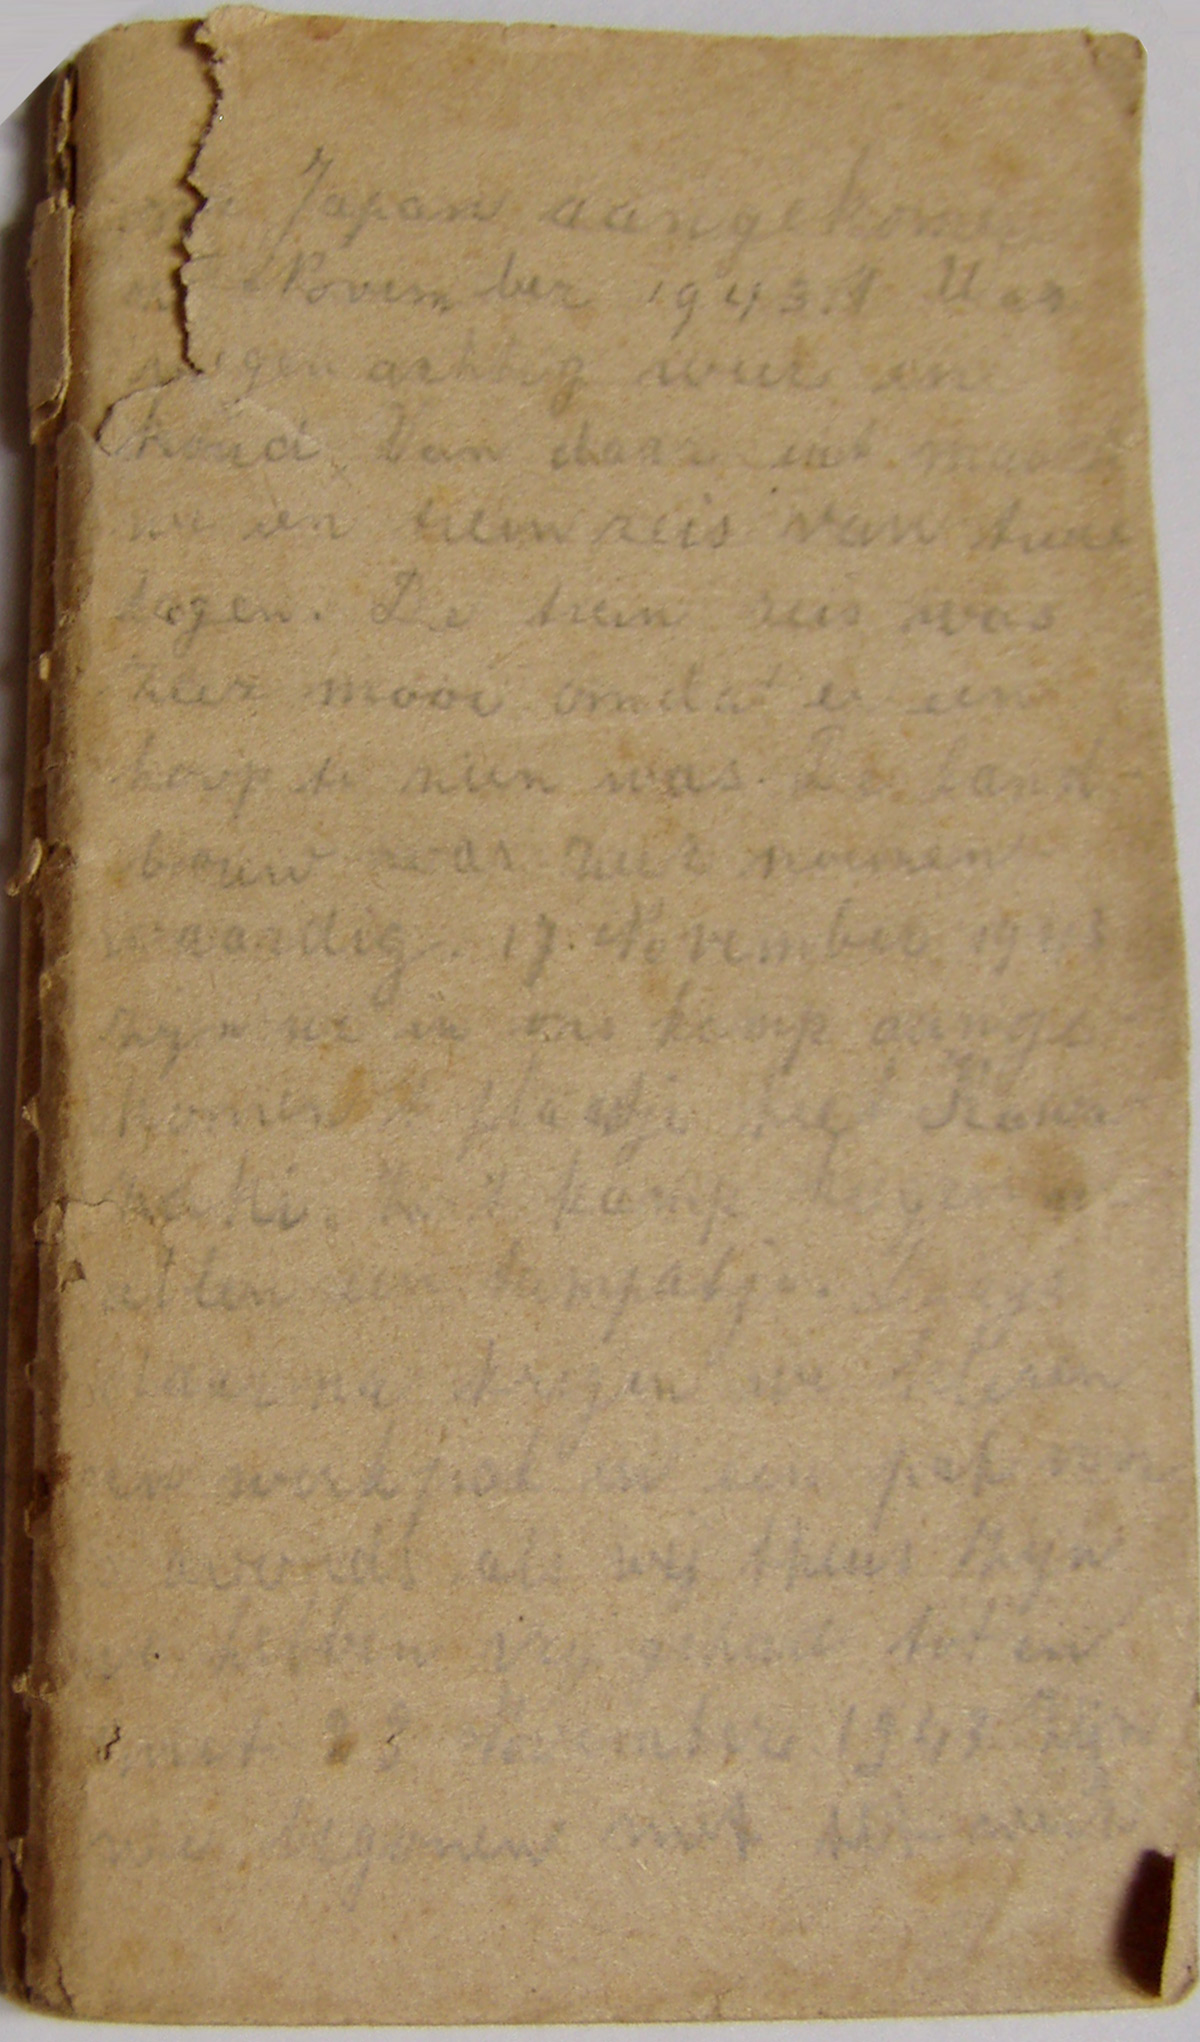 we Japan aangekomen
November 1943. 't Was
regenachtig weer en
koud. Van daar uit maakt
we en trein reis van twee
dagen. De trein reis was
zeer mooi omdat er een
hoop te zien was. De Land-
bouw was zeer noemen
waardig. 17 November 1943
zijn we in ons kamp aange-
komen 't plaatje heet Kawa-
saki. In 't kamp
een
daarna kregen we
een werkpak en een pak voor
s avonds als wij thuis zijn
we hebben vrij gehad tot en
met 28 November 1943 Zijn
we begonnen met werk